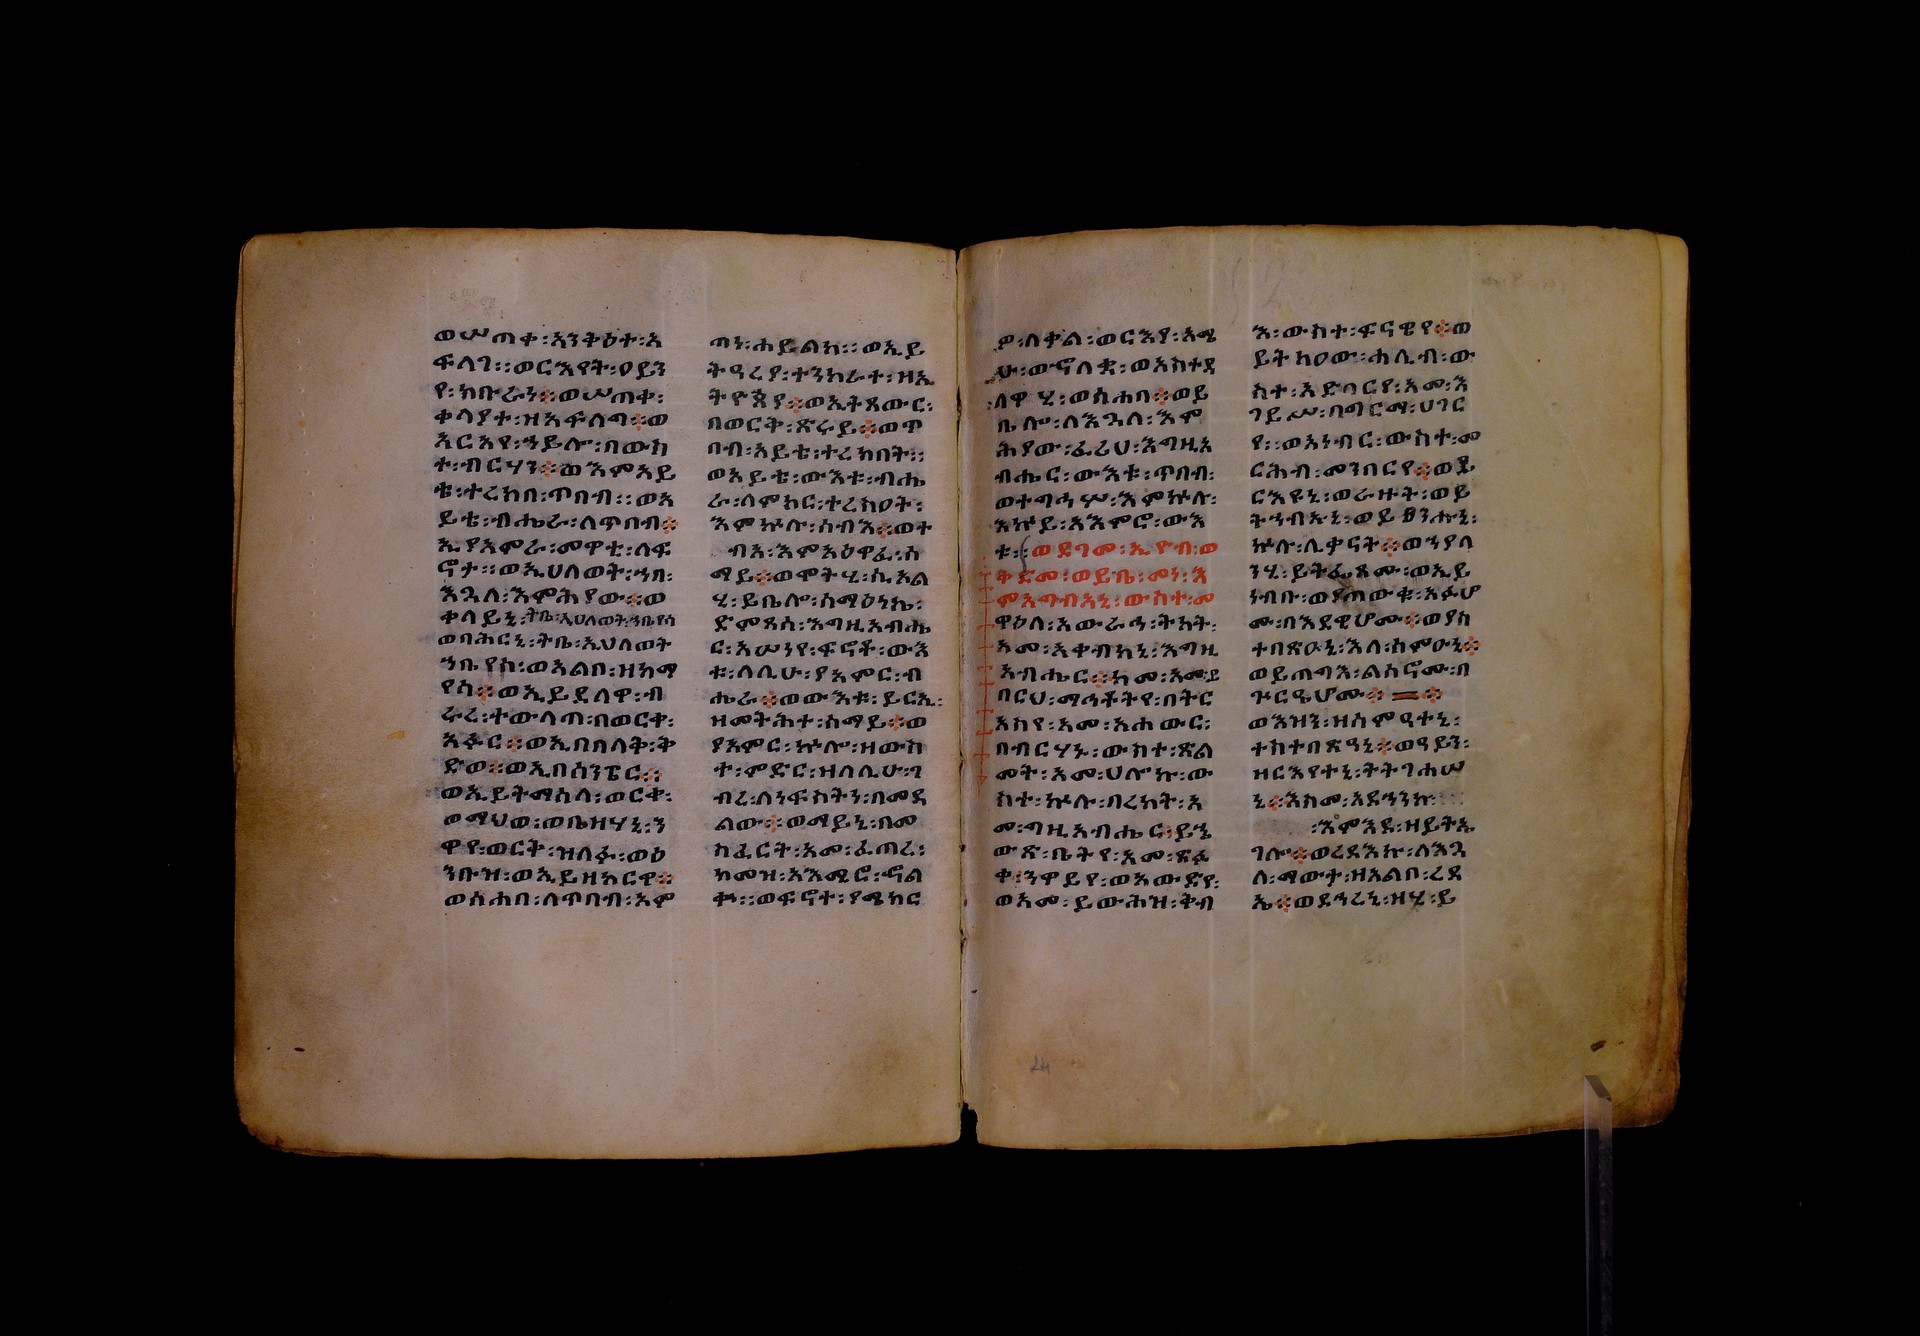 ወሠጠቀ፡አንቅዕተ፡አ
ፍላገ፡፡ወርእየት፡ዐይን
የ፡ክቡራነ፨ወሠጠቀ፡
ቀላያተ፡ዝአፍለግ፨ወ
አርአየ፡ኀይሎ፡በውስ
ተ፡ብርሃን፨ወእምአይ
ቴ፡ተረክበ፡ጥበብ፡፡ወአ
ይቴ፡ብሔራ፡ለጥበብ፨
ኢያአምራ፡መዋቲ፡ለፍ
ኖታ፡፡ወኢሀለወት፡ኀበ፡
እጓለ፡እምሕያው፨ወ
ቀላይኒ፡ትቤ፡ኢሀለወት፡ኀቤየሰ
ወባሕርኒ፡ትቤ፡ኢሀለወት
ኀቤየሰ፡ወአልቦ፡ዝከማ
የሰ፨ወኢይደለዋ፡ብ
ሩረ፡ተውላጠ፡በወርቀ፡
አፉር፨ወኢበበላቅ፡ቅ
ድው፡፡ወኢበሰንፔር፡፡
ወኢይትማሰላ፡ወርቀ፡
ወማህው፡ወቤዝሃኒ፡ን
ዋየ፡ወርቅ፡ዝለፉ፡ወዕ
ንቡዝ፡ወኢይዘከርዋ፨
ወስሐበ፡ለጥበብ፡እም
ጣነ፡ሐይልከ፡፡ወኢይ
ትዓረያ፡ተንከራተ፡ዘኢ
ትዮጵያ፨ወኢትጸውር፡
በወርቅ፡ጽሩይ፨ወጥ
በብ፡አይቴ፡ተረክበት፡፡
ወአይቴ፡ውእቱ፡ብሔ
ራ፡ለምክር፡ተረክዐት፡
እምኵሉ፡ሰብእ፨ወት
ብአ፡እምአዕዋፈ፡ሰ
ማይ፨ወሞትሂ፡ኪአል
ሂ፡ይቤሎ፡ሰማዕነኬ፡
ድምጸሰ፡እግዚአብሔ
ር፡አሠንየ፡ፍኖቶ፡ውእ
ቱ፡ለሊሁ፡ያአምር፡ብ
ሔራ፨ወውእቱ፡ይርኢ፡
ዘመትሕተ፡ሰማይ፨ወ
ያአምር፡ኵሎ፡ዘውስ
ተ፡ምድር፡ዝለሊሁ፡ገ
ብረ፡ለነፍስትን፡በመዳ
ልው፨ወማይኒ፡በመ
ስፈርት፡አመ፡ፈጠረ፡
ከመዝ፡አእሚሮ፡ኖል
ቊ፡፡ወፍኖተ፡የሜከር
ዎ፡ለቀል፡ወርእየ፡አሜ
ሁ፡ውኖለቋ፡ወአስተዳ
ለዋ ሂ፡ወሰሐበ፨ወይ
ቤሎ፡ለእጓለ፡እም
ሕያው፡ፈሪህ፡እግዚአ
ብሔር፡ውእቱ፡ጥበብ፡
ወተግሓሦ፡እምኵሉ፡
እኩይ፡አእምሮ፡ውእ
ቱ፡፡ወደገመ፡ኢዮብ፡ወ
ቅድመ፡ወይቤ፡መነ፡እ
ምአግብአኒ፡ውስተ፡መ
ዋዕለ፡አውራኅ፡ትካት፡
አመ፡አቀብከኒ፡እግዚ
አብሔር፨ከመ፡አመይ
በርህ፡ማኅቶትየ፡በትር
አስየ፡አመ፡አሐውር፡
በብርሃኑ፡ውስተ፡ጽል
መት፡አመ፡ሀሎኩ፡ው
ስተ፡ኵሉ፡በረከት፡አ
መ፡ግዚአብሔር፡ይኔ
ውጽ፡ቤትየ፡አመ፡ጽፉ
ቀ፡ንዋይየ፡ወአውድየ፡
ወአመ፡ይውሕዝ፡ቅብ
እ፡ውስተ፡ፍናዌየ፨ወ
ይትከዐው፡ሐሊብ፡ው
ስተ፡አድባርየ፡አመ፡እ
ገይሥ፡በግርማ፡ሀገር
የ፡፡ወእነብር፡ውስተ፡መ
ርሕብ፡መንበርየ፨ወይ
ርእዩኒ፡ወራዙት፡ወይ
ትኀብኡኒ፡ወይፀንሑኒ፡
ኵሉ፡ሊቃናት፨ወኀያላ
ንሂ፡ይትፌጸሙ፡ወኢይ
ነብቡ፡ወያጠውቁ፡አፉሆ
ሙ፡በእደዊሆሙ፨ወያስ
ተበጽዑኒ፡እለ፡ሰምዑኒ፨
ወይጠግእ፡ልሳኖሙ፡በ
ጕርዔሆሙ፨
ወእዝን፡ዘሰምዓተኒ፡
ተስተበጽዓኒ፨ወዓይን፡
ዘርእየተኒ፡ትትገሐሠ
ኒ፨እስመ፡አድኀንኩ
፡እምእደ፡ዘይትኤ
ገሎ፨ወረዳእኩ፡ለእጓ
ለ፡ማውታ፡ዘአልቦ፡ረዳ
ኤ፨ወደኀረኒ፡ዘሂ፡ይ
24